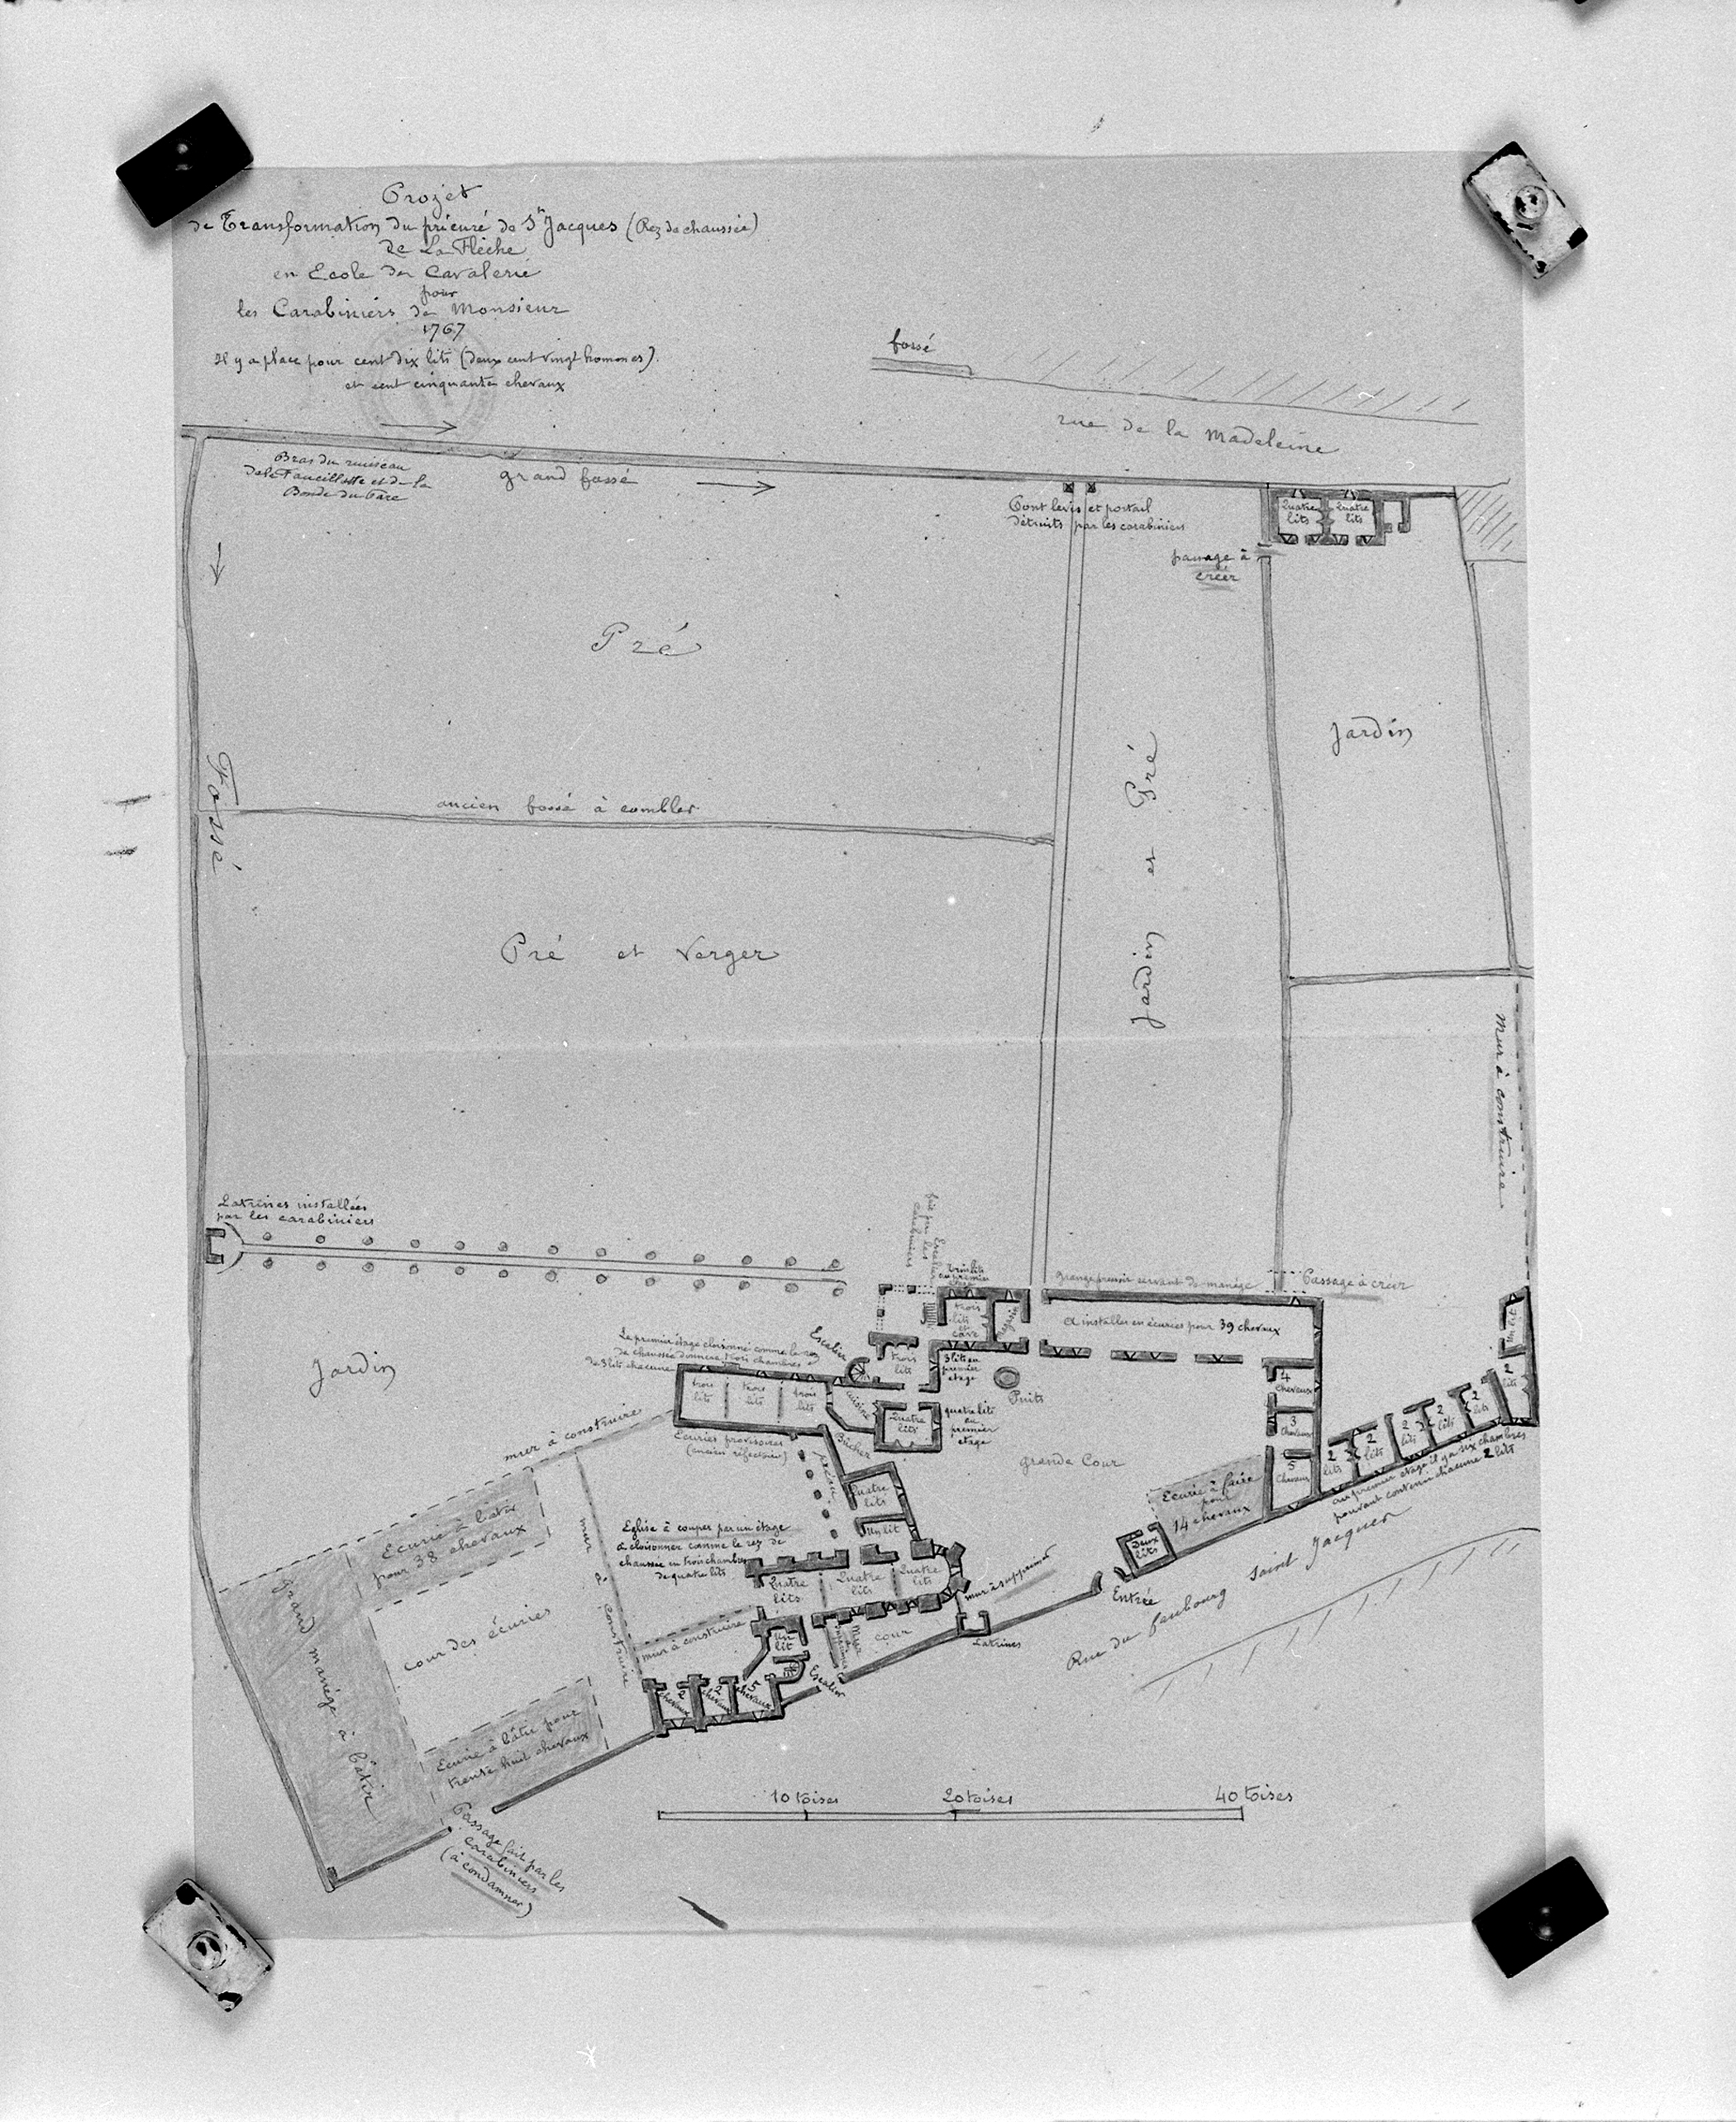 Projet
de Transformation du prieuré de St Jacques (Rez de chaussée)
de La Flèche
en Ecole de Cavalerie
pour
les Carabiniers de Monsieur
1767
Il y a place pour cent dix lits (deux cent vingt hommes)
et cent cinquante chevaux
fossé
rue de la Madeleine
Bras du ruisseau
de la Faucillette et de la
Bonde du Parc
grand fossé
Pont levis et portail
détruits par les carabiniers
Quatre
lits
Quatre
lits
passage à
créer
Pré
Jardin
Fossé
ancien fossé à combler
Jardin et Pré
Pré et Verger
Mur à construire
Latrines installées
par les carabiniers
grange pressoir servant de manège
Passage à créer
à installer en écuries pour 39 chevaux
trois
lits
et
cave
Escalier
trois
lits
3 lits au
premier
étage
Puits
Le premier étage cloisonné comme le rez
de chaussée donnera trois chambres
de 3 lits chacune
trois
lits
trois
lits
trois
lits
cuisine
Quatre
lits
quatre lits
au
premier
étage
Jardin
mur à construire
Ecuries provisoires
(ancien réfectoire)
Bucher
préau
grande Cour
4
chevaux
3
chevaux
5
chevaux
2
lits
2
lits
2
lits
2
lits
2
lits
2
lits
au premier étage il y a six chambres
pouvant contenir chacune 2 lits
Ecurie à faire
pour
14 chevaux
Deux
lits
Entrée
Rue du faubourg Saint Jacques
Quatre
lits
Un lit
Eglise à couper par un étage
à cloisonner comme le rez de
chaussée en trois chambres
de quatre lits
Quatre
lits
Quatre
lits
Quatre
lits
mur à supprimer
Latrines
cour
Ecurie à bâtir
pour 38 chevaux
mur à construire
grand manège à bâtir
cour des écuries
mur à construire
un
lit
Escalier
2
chevaux
2
chevaux
5
chevaux
Ecurie à bâtir pour
trente huit chevaux
Passage fait par les
carabiniers
(à condamner)
10 toises
20 toises
40 toises